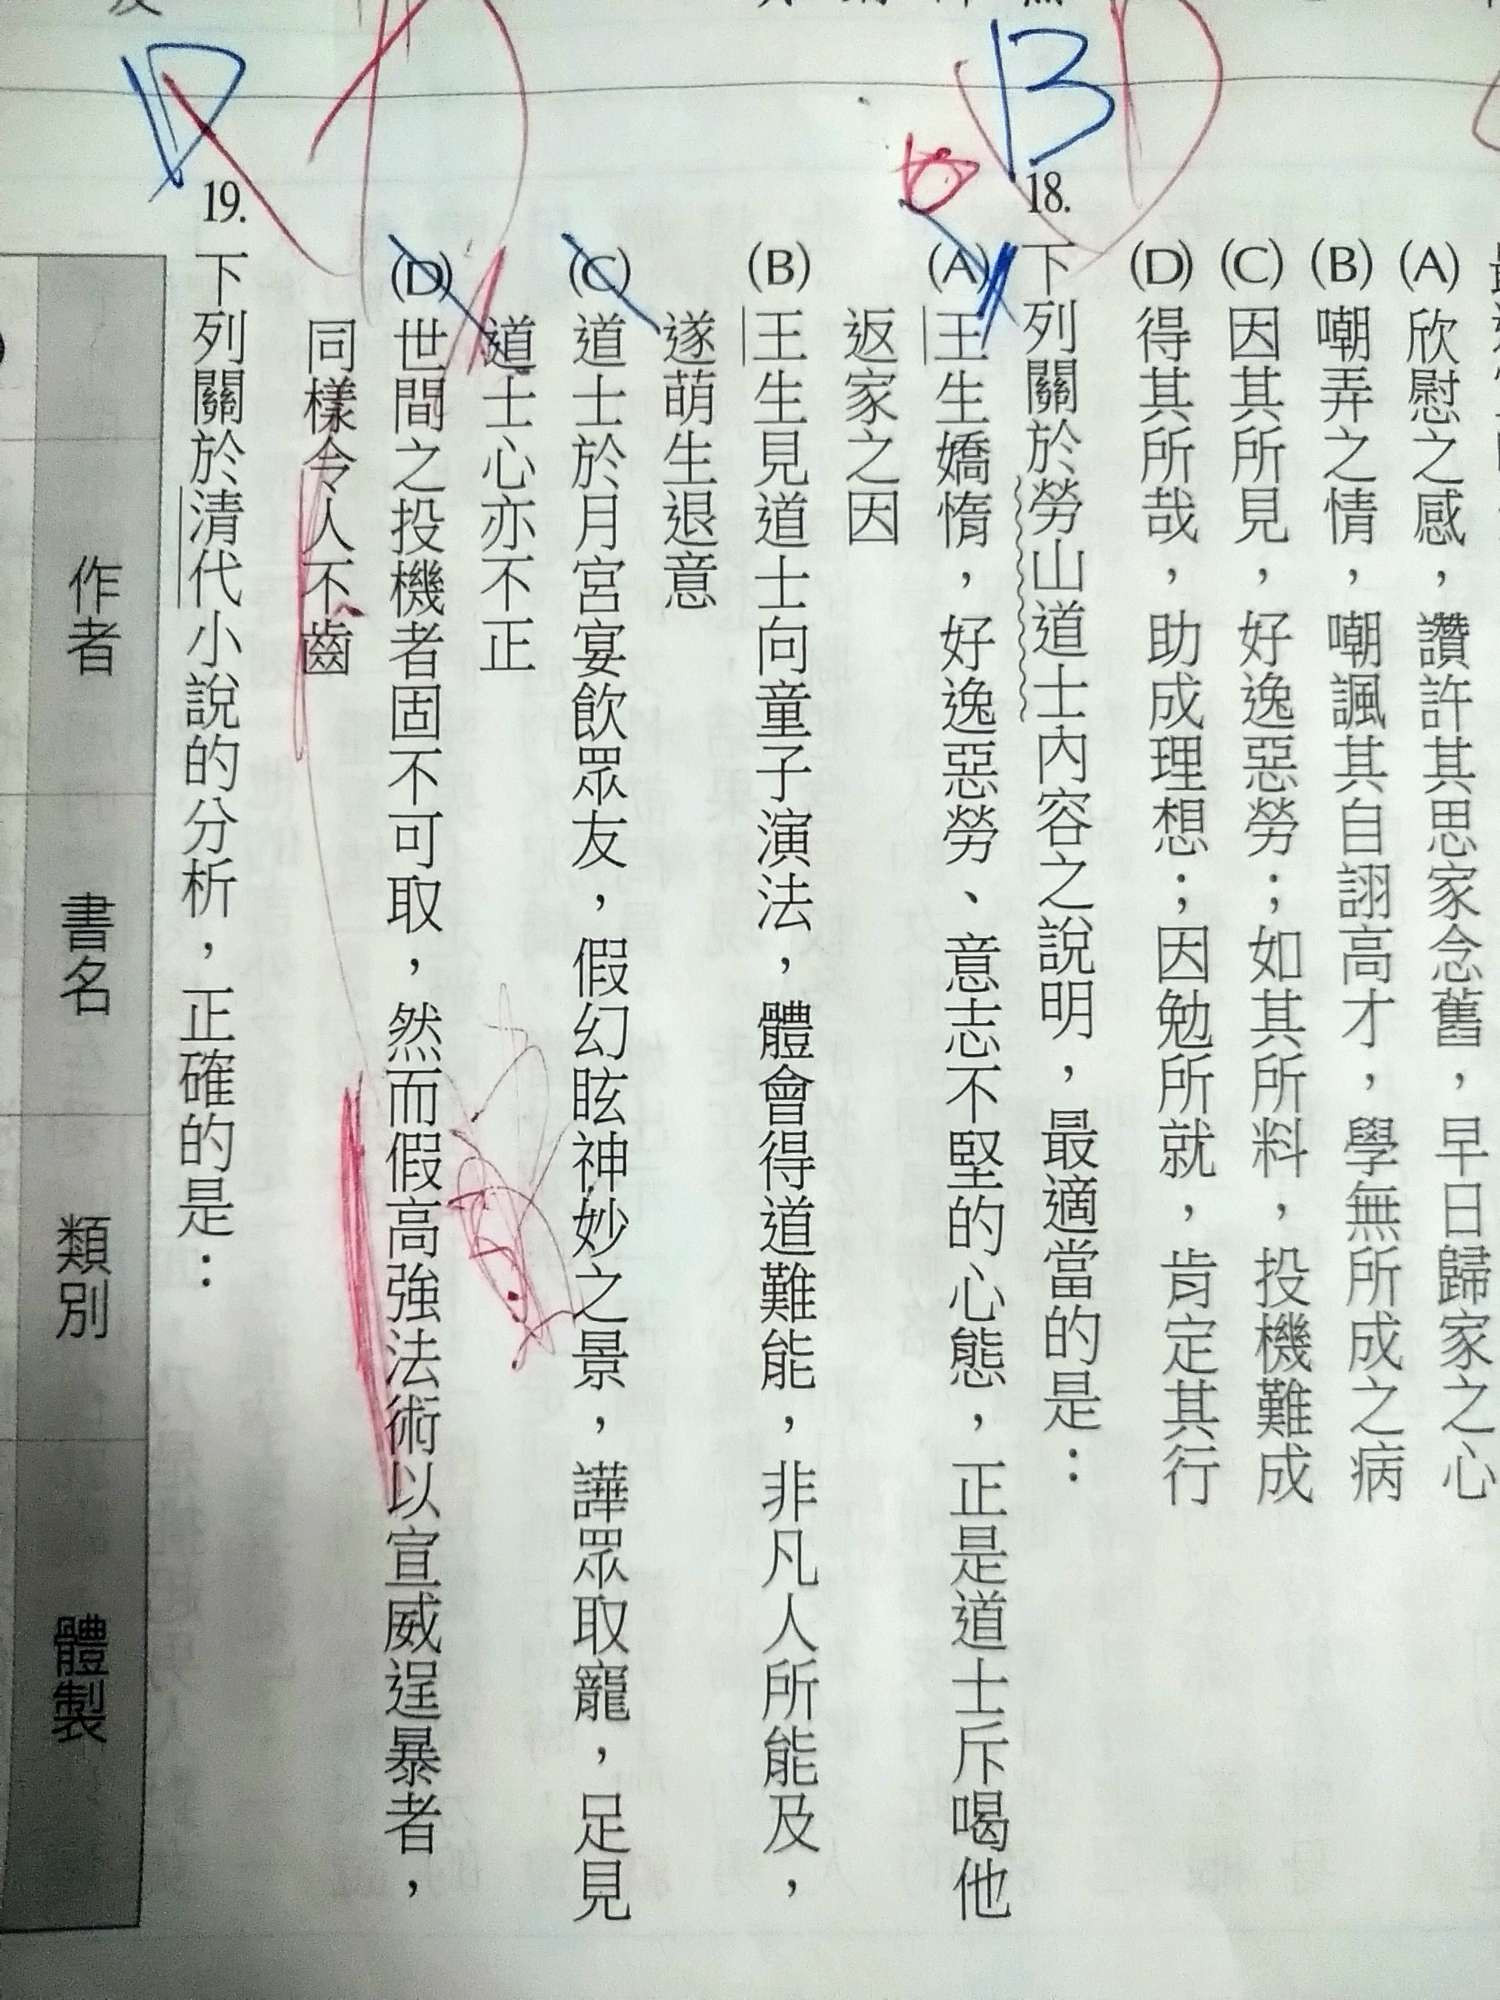 (A)欣慰之感，讚許其思家念舊，早日歸家之心
(B)嘲弄之情，嘲諷其自詡高才，學無所成之病
(C)因其所見，好逸惡勞；如其所料，投機難成
(D)得其所哉，助成理想；因勉所就，肯定其行
BD
18.下列關於勞山道士內容之說明，最適當的是：
(A)王生嬌惰，好逸惡勞、意志不堅的心態，正是道士斥喝他
返家之因
(B)王生見道士向童子演法，體會得道難能，非凡人所能及，
遂萌生退意
(C)道士於月宮宴飲眾友，假幻眩神妙之景，譁眾取寵，足見
道士心亦不正
(D)世間之投機者固不可取，然而假高強法術以宣威逞暴者，
同樣令人不齒
D
19.下列關於清代小說的分析，正確的是：
作者 書名 類別 體製